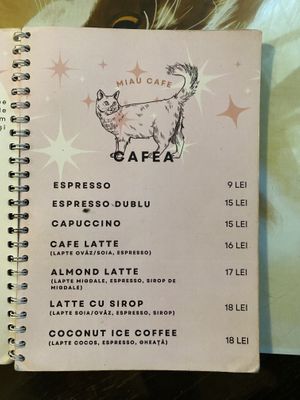 MIAU CAFE
CAFEA
ESPRESSO 9 LEI
ESPRESSO DUBLU 15 LEI
CAPUCCINO 15 LEI
CAFE LATTE 16 LEI
(LAPTE OVĂZ/SOIA, ESPRESSO)
ALMOND LATTE 17 LEI
(LAPTE MIGDALE, ESPRESSO, SIROP DE
MIGDALE)
LATTE CU SIROP 18 LEI
(LAPTE SOIA/OVĂZ, ESPRESSO, SIROP)
COCONUT ICE COFFEE 18 LEI
(LAPTE COCOS, ESPRESSO, GHEAȚĂ)